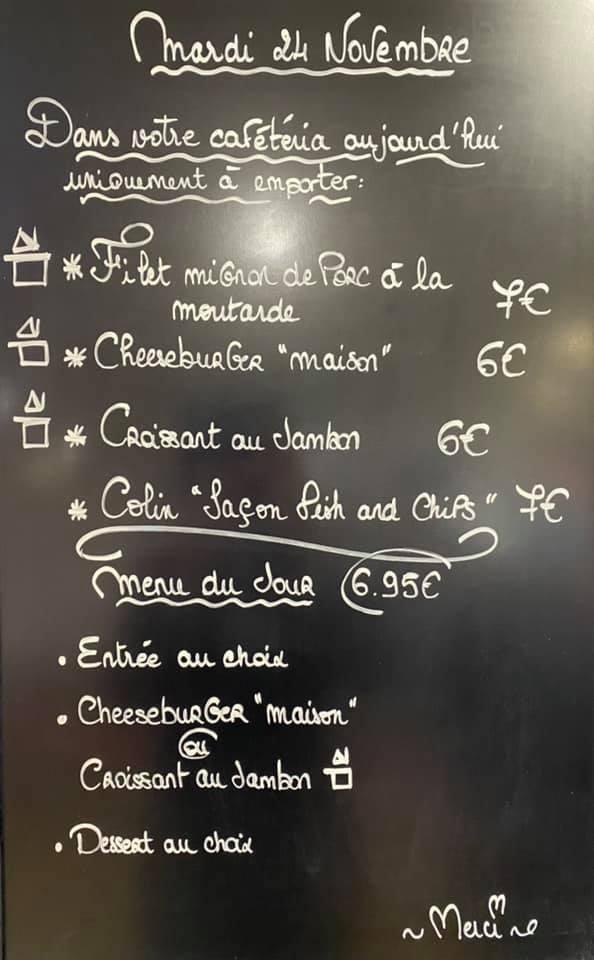 Mardi 24 Novembre
Dans votre cafétéria aujourd'hui
uniquement à emporter:
* Filet mignon de Porc à la
moutarde 7€
* Cheeseburger "maison" 6€
* Croissant au Jambon 6€
* Colin "façon fish and chips" 7€
Menu du Jour 6.95€
• Entrée au choix
• Cheeseburger "maison"
ou
Croissant au Jambon
• Dessert au choix
~ Merci ~